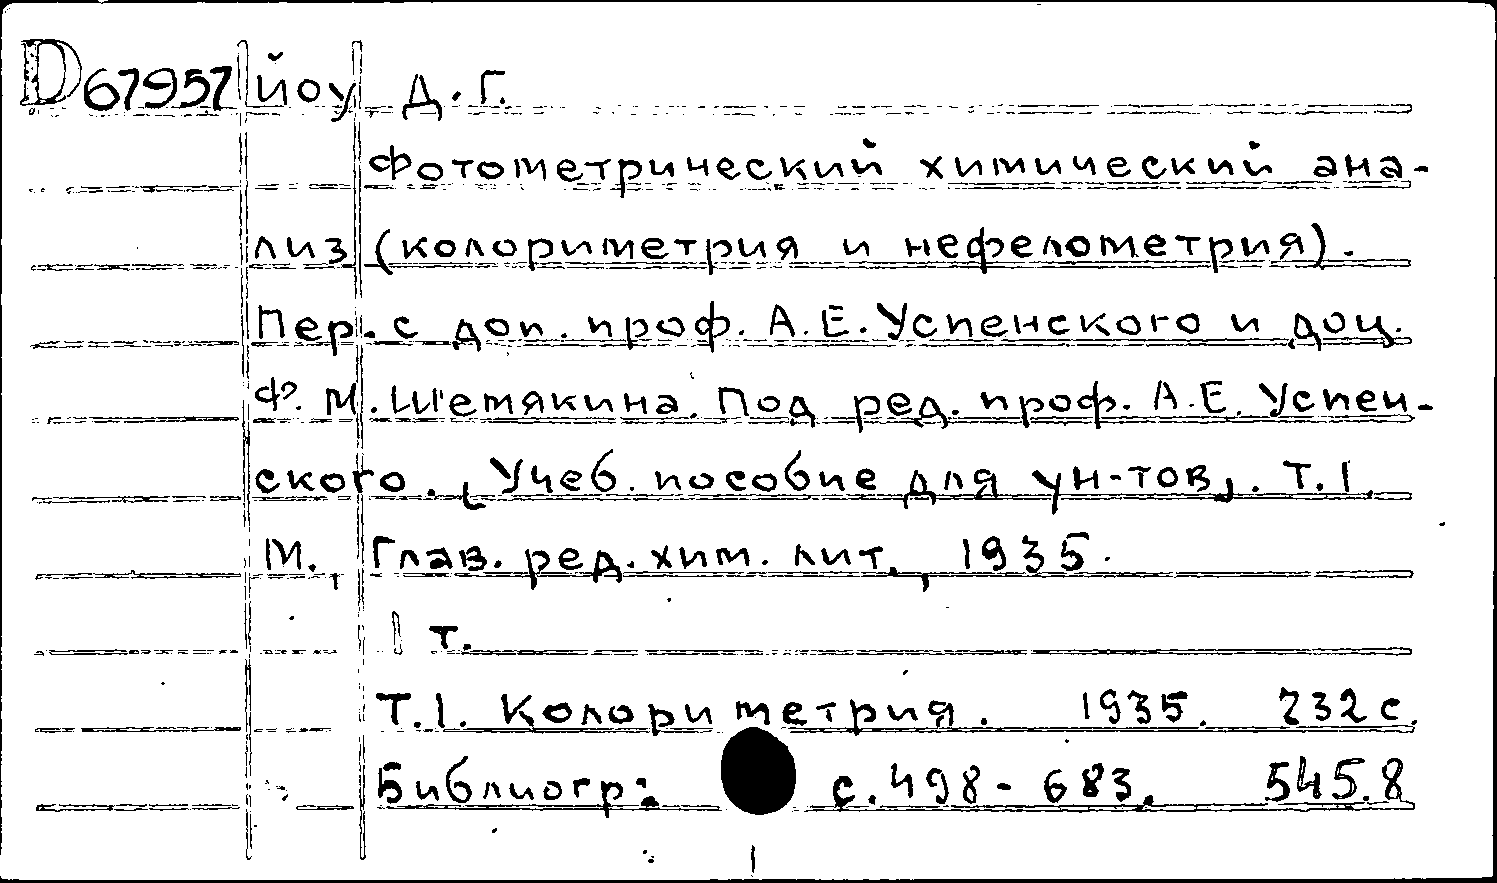 D67957 Йоу Д.Г.
Фотометрический химический ана-
лиз (колориметрия и нефелометрия).
Пер. с доп. проф. А.Е.Успенского и доц.
Ф.М.Шемякина. Под ред. проф. А.Е.Успен-
ского. [Учеб. пособие для ун-тов]. Т.1.
М., Глав. ред. хим. лит., 1935.
1 т.
Т.1. Колориметрия. 1935. 732с.
Библиогр: с.498-683. 545.8